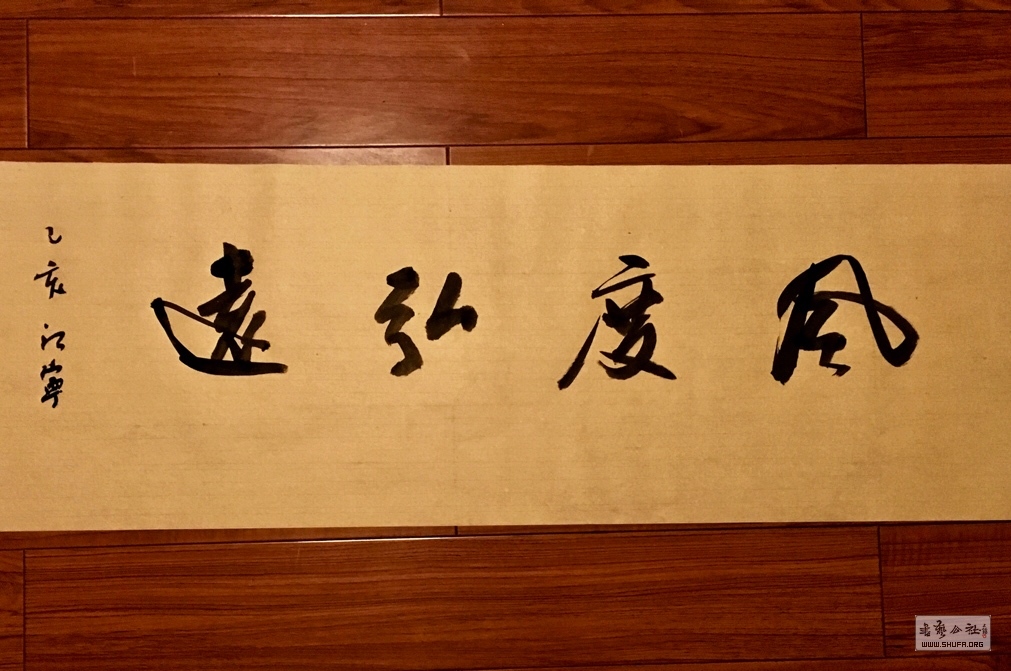 風度弘遠
己亥 江寧
書藝公社
WWW.SHUFA.ORG